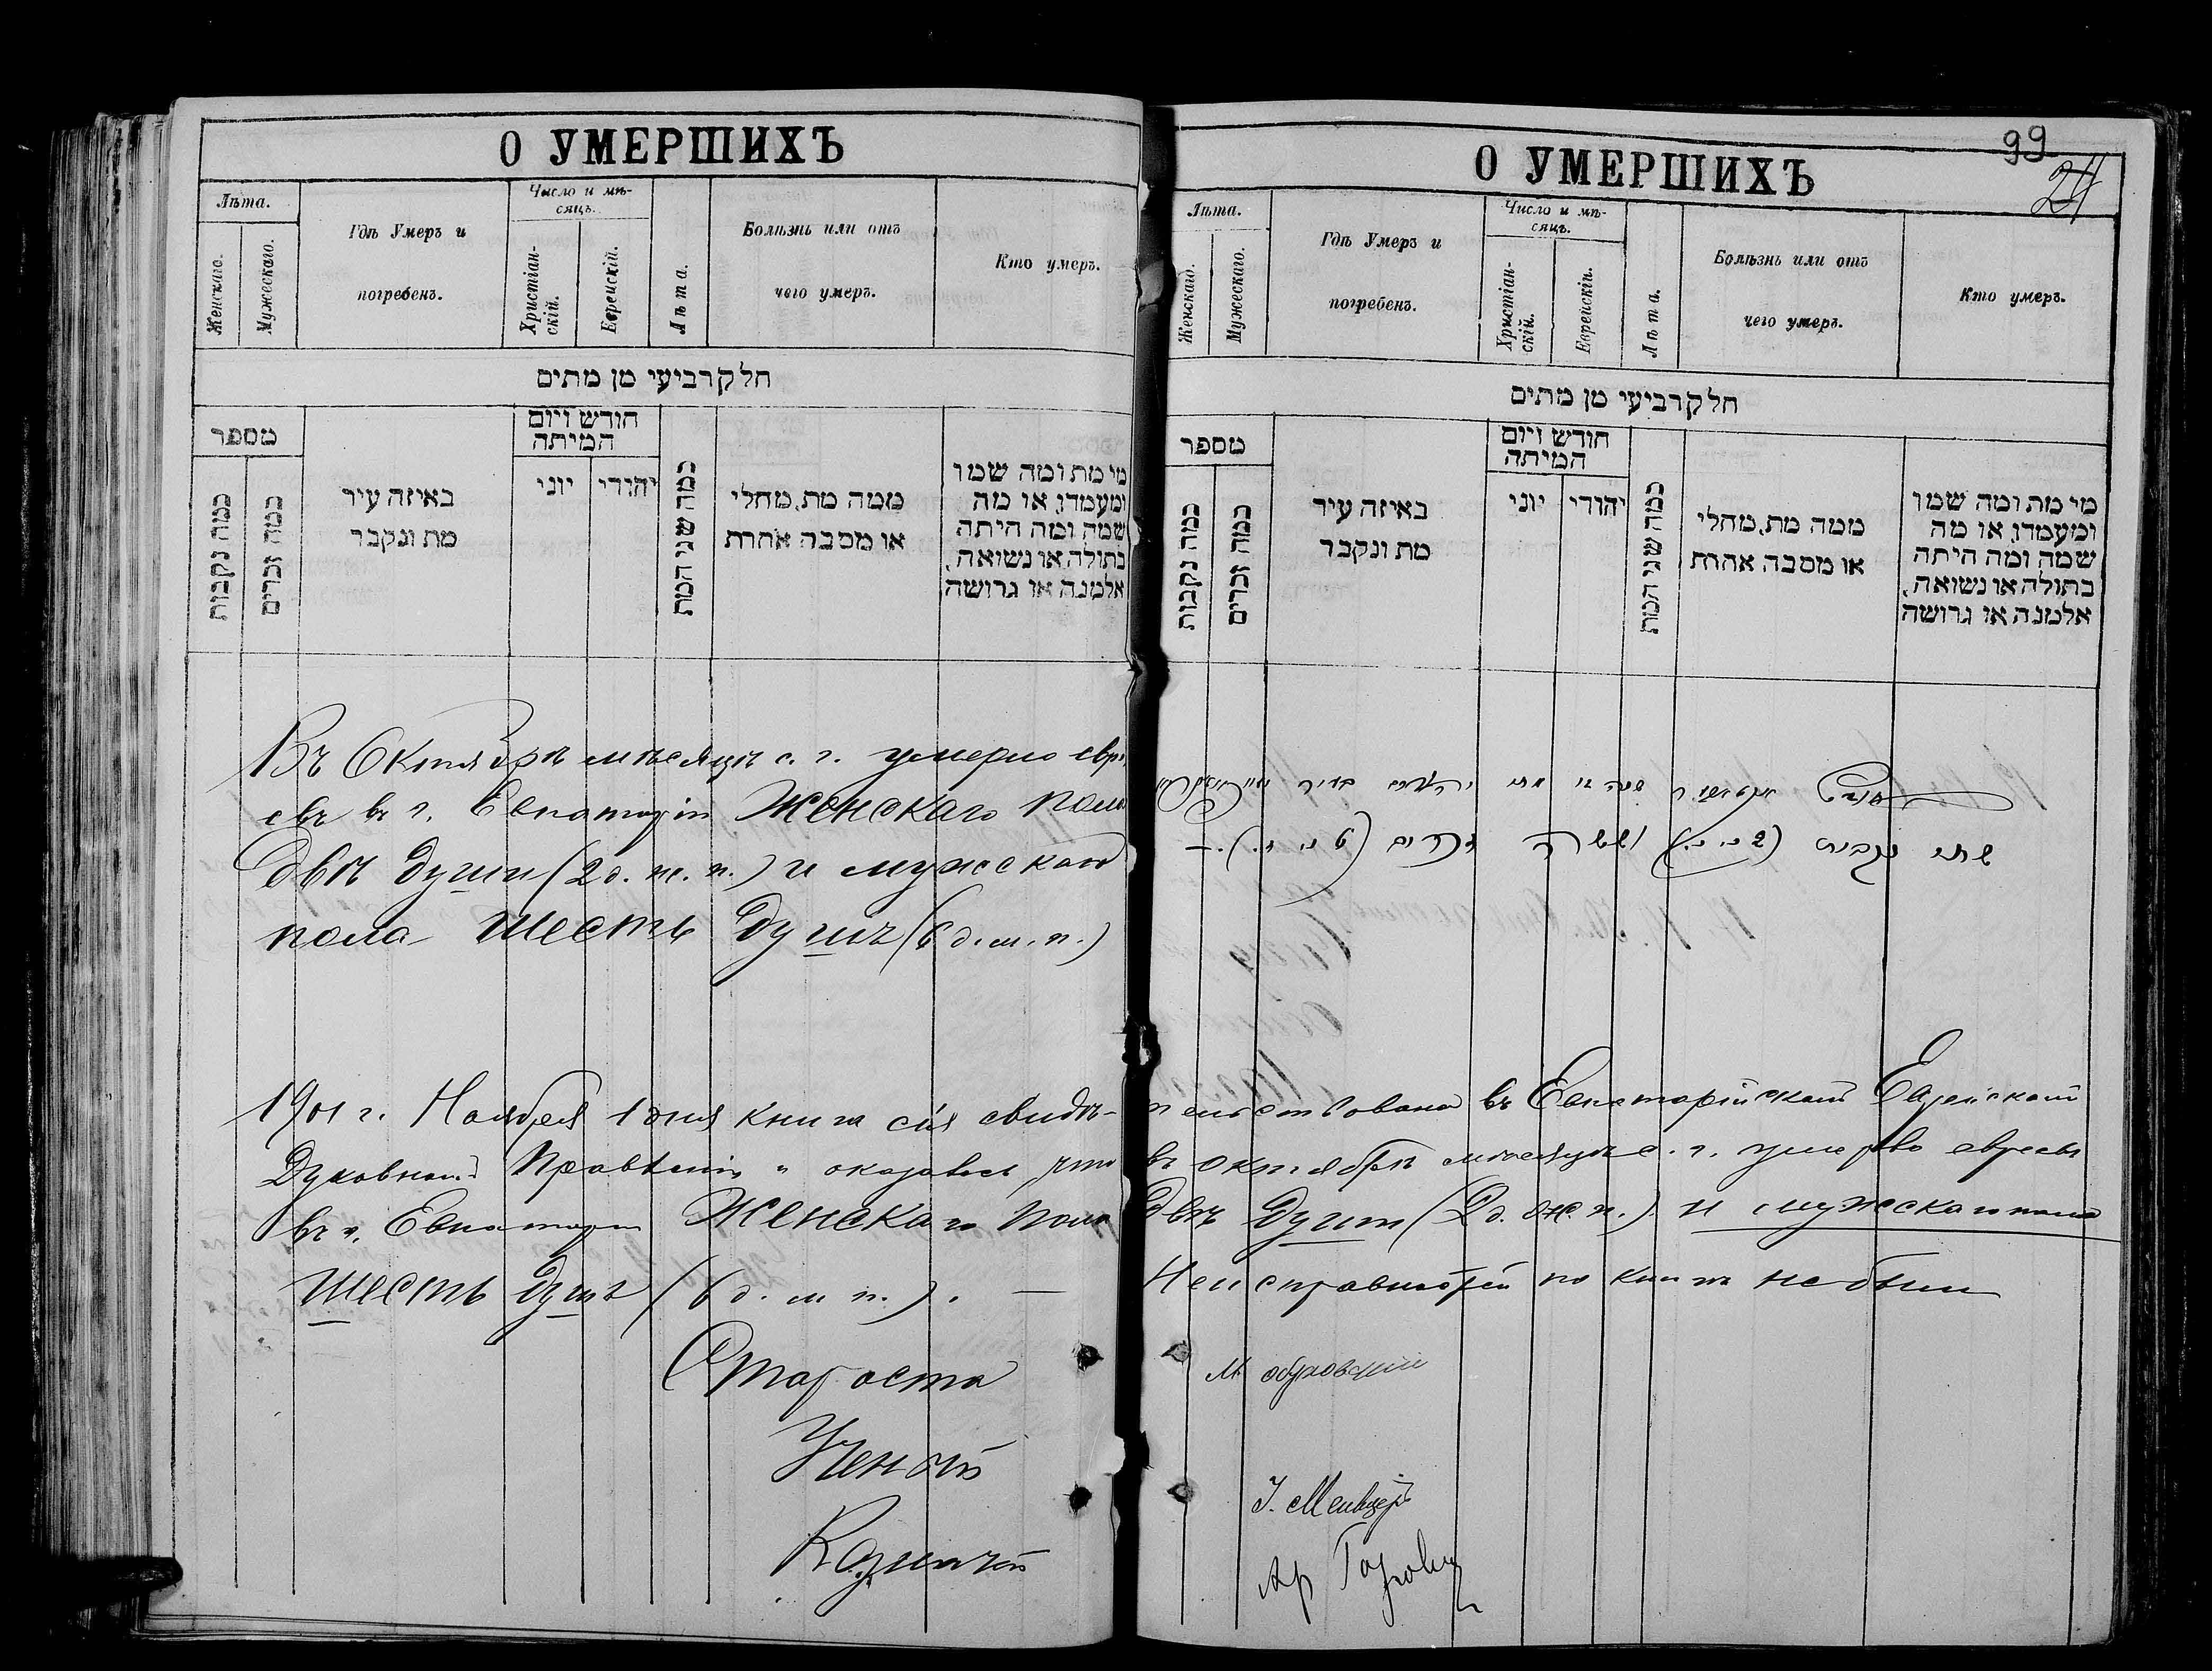 О УМЕРШИХЪ
Лѣта.
Женскаго.
Мужескаго.
Гдѣ Умеръ и
погребенъ.
Число и мѣ-
сяцъ.
Христіан-
скій.
Еврейскій.
Лѣта.
Болѣзнь или отъ
чего умеръ.
Кто умеръ.
חלק רביעי מן מתים
מספר
כמה נקבות
כמה זכרים
באיזה עיר
מת ונקבר
חודש ויום
המיתה
יוני
יהודי
כמה שני המת
ממה מת, מחלי
או מסבה אחרת
מי מת ומה שמו
ומעמדו, או מה
שמה ומה היתה
בתולה או נשואה,
אלמנה או גרושה
Въ Октябрѣ мѣсяцѣ с. г. умерло евре
евъ въ г. Евпаторіи Женскаго пола
двѣ души (2 д. ж. п.) и мужскаго
пола шесть душъ (6 д. м. п.)
1901 г. Ноября 1 дня книга сія свидѣ-
Духовномъ Правленіи и оказалось что
въ г. Евпаторіи Женскаго пола
шесть душъ (6 д. м. п.). —
Староста
Ученый
Казначей
99
24
О УМЕРШИХЪ
Лѣта.
Женскаго.
Мужескаго.
Гдѣ Умеръ и
погребенъ.
Число и мѣ-
сяцъ.
Христіан-
скій.
Еврейскій.
Лѣта.
Болѣзнь или отъ
чего умеръ.
Кто умеръ.
חלק רביעי מן מתים
מספר
כמה נקבות
כמה זכרים
באיזה עיר
מת ונקבר
חודש ויום
המיתה
יוני
יהודי
כמה שני המת
ממה מת, מחלי
או מסבה אחרת
מי מת ומה שמו
ומעמדו, או מה
שמה ומה היתה
בתולה או נשואה,
אלמנה או גרושה
שתי נקבות (2 נ. נ.) וששה זכרים (6 נ. ז.) —
тельствована въ Евпаторійскомъ Еврейскомъ
въ октябрѣ мѣсяцѣ с. г. умерло евреевъ
двѣ души (2 д. ж. п.) и мужскаго пола
Неисправностей по книгѣ не было
М
И.
Ар